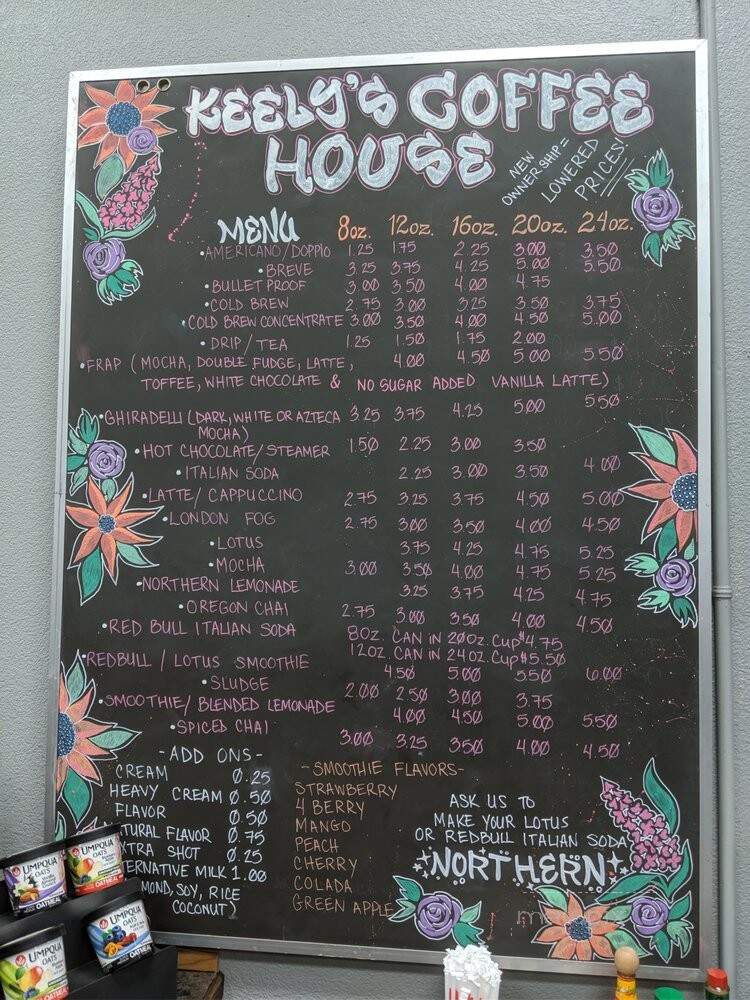 KEELY'S COFFEE
HOUSE
NEW
OWNERSHIP =
LOWERED
PRICES!
MENU 8oz. 12oz. 16oz. 20oz. 24oz.
•AMERICANO/DOPPIO 1.25 1.75 2.25 3.00 3.50
•BREVE 3.25 3.75 4.25 5.00 5.50
•BULLET PROOF 3.00 3.50 4.00 4.75
•COLD BREW 2.75 3.00 3.25 3.50 3.75
•COLD BREW CONCENTRATE 3.00 3.50 4.00 4.50 5.00
•DRIP/TEA 1.25 1.50 1.75 2.00
•FRAP (MOCHA, DOUBLE FUDGE, LATTE, 4.00 4.50 5.00 5.50
TOFFEE, WHITE CHOCOLATE & NO SUGAR ADDED VANILLA LATTE)
•GHIRADELLI (DARK, WHITE OR AZTECA 3.25 3.75 4.25 5.00 5.50
MOCHA)
•HOT CHOCOLATE/STEAMER 1.50 2.25 3.00 3.50
•ITALIAN SODA 2.25 3.00 3.50 4.00
•LATTE/CAPPUCCINO 2.75 3.25 3.75 4.50 5.00
•LONDON FOG 2.75 3.00 3.50 4.00 4.50
•LOTUS 3.75 4.25 4.75 5.25
•MOCHA 3.00 3.50 4.00 4.75 5.25
•NORTHERN LEMONADE 3.25 3.75 4.25 4.75
•OREGON CHAI 2.75 3.00 3.50 4.00 4.50
•RED BULL ITALIAN SODA 8oz. CAN IN 20oz. Cup $4.75
12oz. CAN IN 24oz. Cup $5.50
•REDBULL / LOTUS SMOOTHIE 4.50 5.00 5.50 6.00
•SLUDGE 2.00 2.50 3.00 3.75
•SMOOTHIE/BLENDED LEMONADE 4.00 4.50 5.00 5.50
•SPICED CHAI 3.00 3.25 3.50 4.00 4.50
-ADD ONS-
CREAM 0.25
HEAVY CREAM 0.50
FLAVOR 0.50
NATURAL FLAVOR 0.75
EXTRA SHOT 0.25
ALTERNATIVE MILK 1.00
MOND, SOY, RICE
COCONUT
-SMOOTHIE FLAVORS-
STRAWBERRY
4 BERRY
MANGO
PEACH
CHERRY
COLADA
GREEN APPLE
ASK US TO
MAKE YOUR LOTUS
OR REDBULL ITALIAN SODA
NORTHERN
UMPQUA
OATS
UMPQUA
OATS
OATMEAL
UMPQUA
OATS
OATMEAL
UMPQUA
OATS